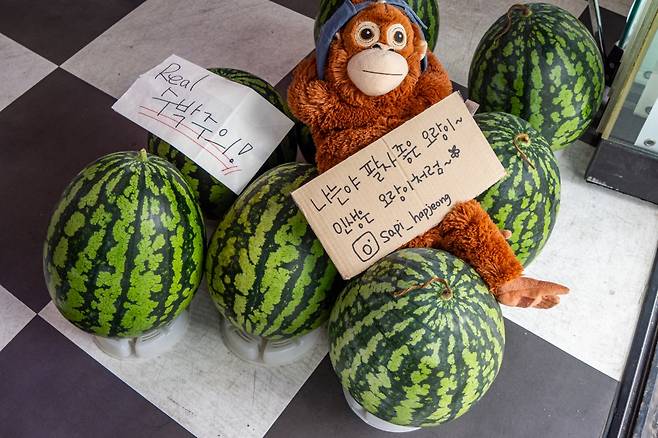 Real
수박주의!
나는야 팔자좋은 오랑이~
인생은 오랑이처럼~
sapi_hapjeong